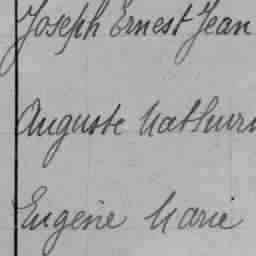 Joseph Ernest Jean
Auguste Mathurin
Eugène Marie